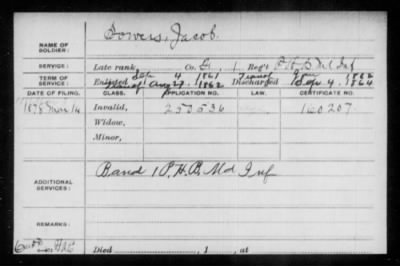 NAME OF SOLDIER:
Jacob.
SERVICE:
Late rank, Co. G, 1 Reg't P.H.B. Md Inf
TERM OF SERVICE:
Enlisted Sep. 4 1861 Discharged 1862
1862 Sep. 4. 1864
DATE OF FILING. CLASS. APPLICATION NO. LAW. CERTIFICATE NO.
1878 14 Invalid, 250536 160207.
Widow,
Minor,
ADDITIONAL SERVICES:
Band 1 P.H.B. Md Inf
REMARKS:
Died , 1 , at